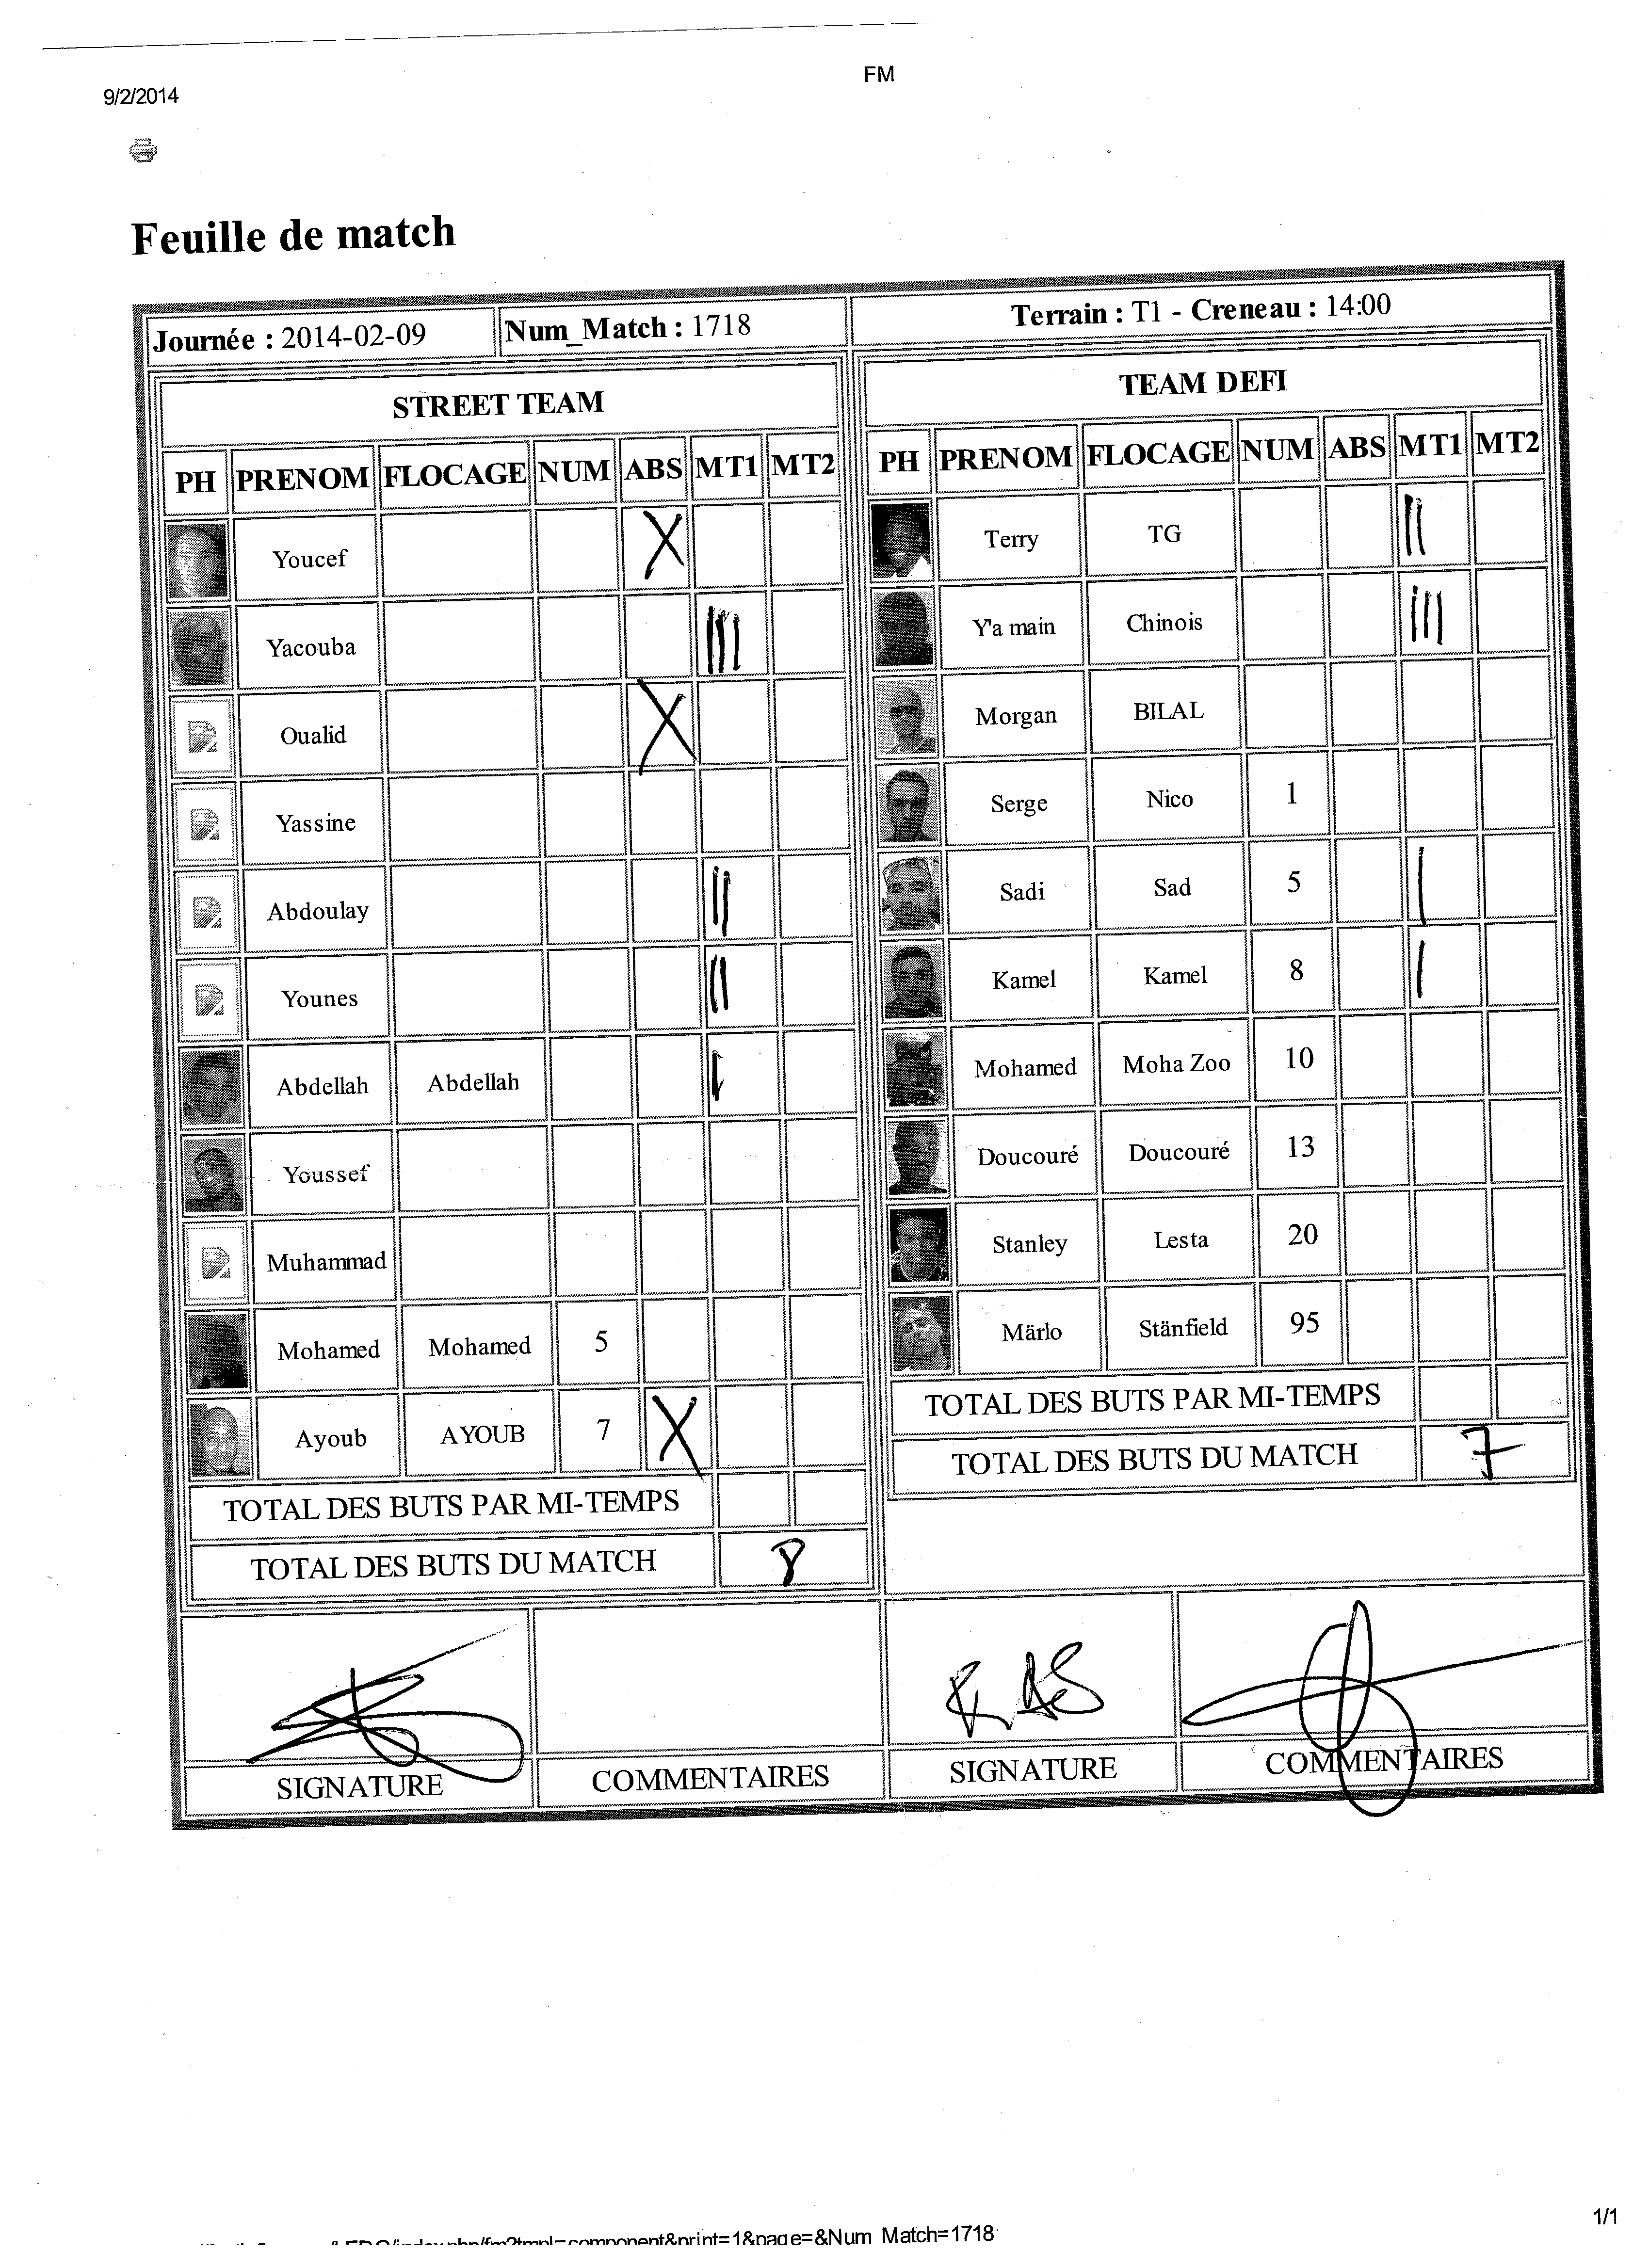 FM
9/2/2014
Feuille de match
Journée : 2014-02-09 Num_Match : 1718 Terrain : T1 - Creneau : 14:00
STREET TEAM
PH PRENOM FLOCAGE NUM ABS MT1 MT2
Youcef X
Yacouba |||
Oualid X
Yassine
Abdoulay ||
Younes ||
Abdellah Abdellah |
Youssef
Muhammad
Mohamed Mohamed 5
Ayoub AYOUB 7 X
TOTAL DES BUTS PAR MI-TEMPS
TOTAL DES BUTS DU MATCH 8
SIGNATURE COMMENTAIRES
TEAM DEFI
PH PRENOM FLOCAGE NUM ABS MT1 MT2
Terry TG ||
Y'a main Chinois |||
Morgan BILAL
Serge Nico 1
Sadi Sad 5 |
Kamel Kamel 8 |
Mohamed Moha Zoo 10
Doucouré Doucouré 13
Stanley Lesta 20
Märlo Stänfield 95
TOTAL DES BUTS PAR MI-TEMPS
TOTAL DES BUTS DU MATCH 7
SIGNATURE COMMENTAIRES
1/1
index.php/fm?tmpl=component&print=1&page=&Num_Match=1718